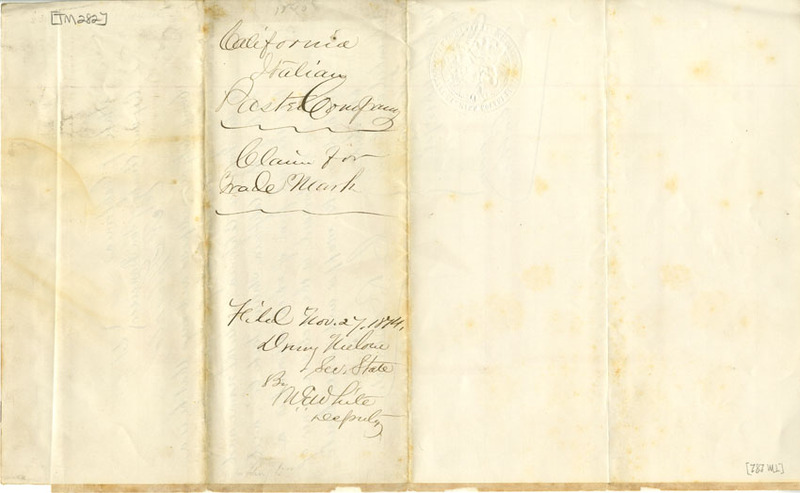 [TM 282]
California
Italian
Paste Company
Claim for
Trade Mark
Filed Nov. 27, 1874,
Drury Melone
Sec. State
By
Deputy
[TM 282]